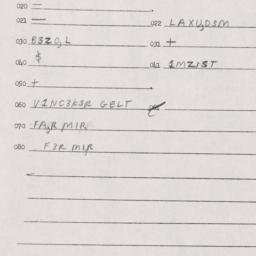 020 =
021 —
022 LAXU,D3M
030 B3ZO,L
031 +
040 $
041 1MZIST
050 +
060 V1NC3K3R GELT
070 FA,R MIR
080 F3R MIR